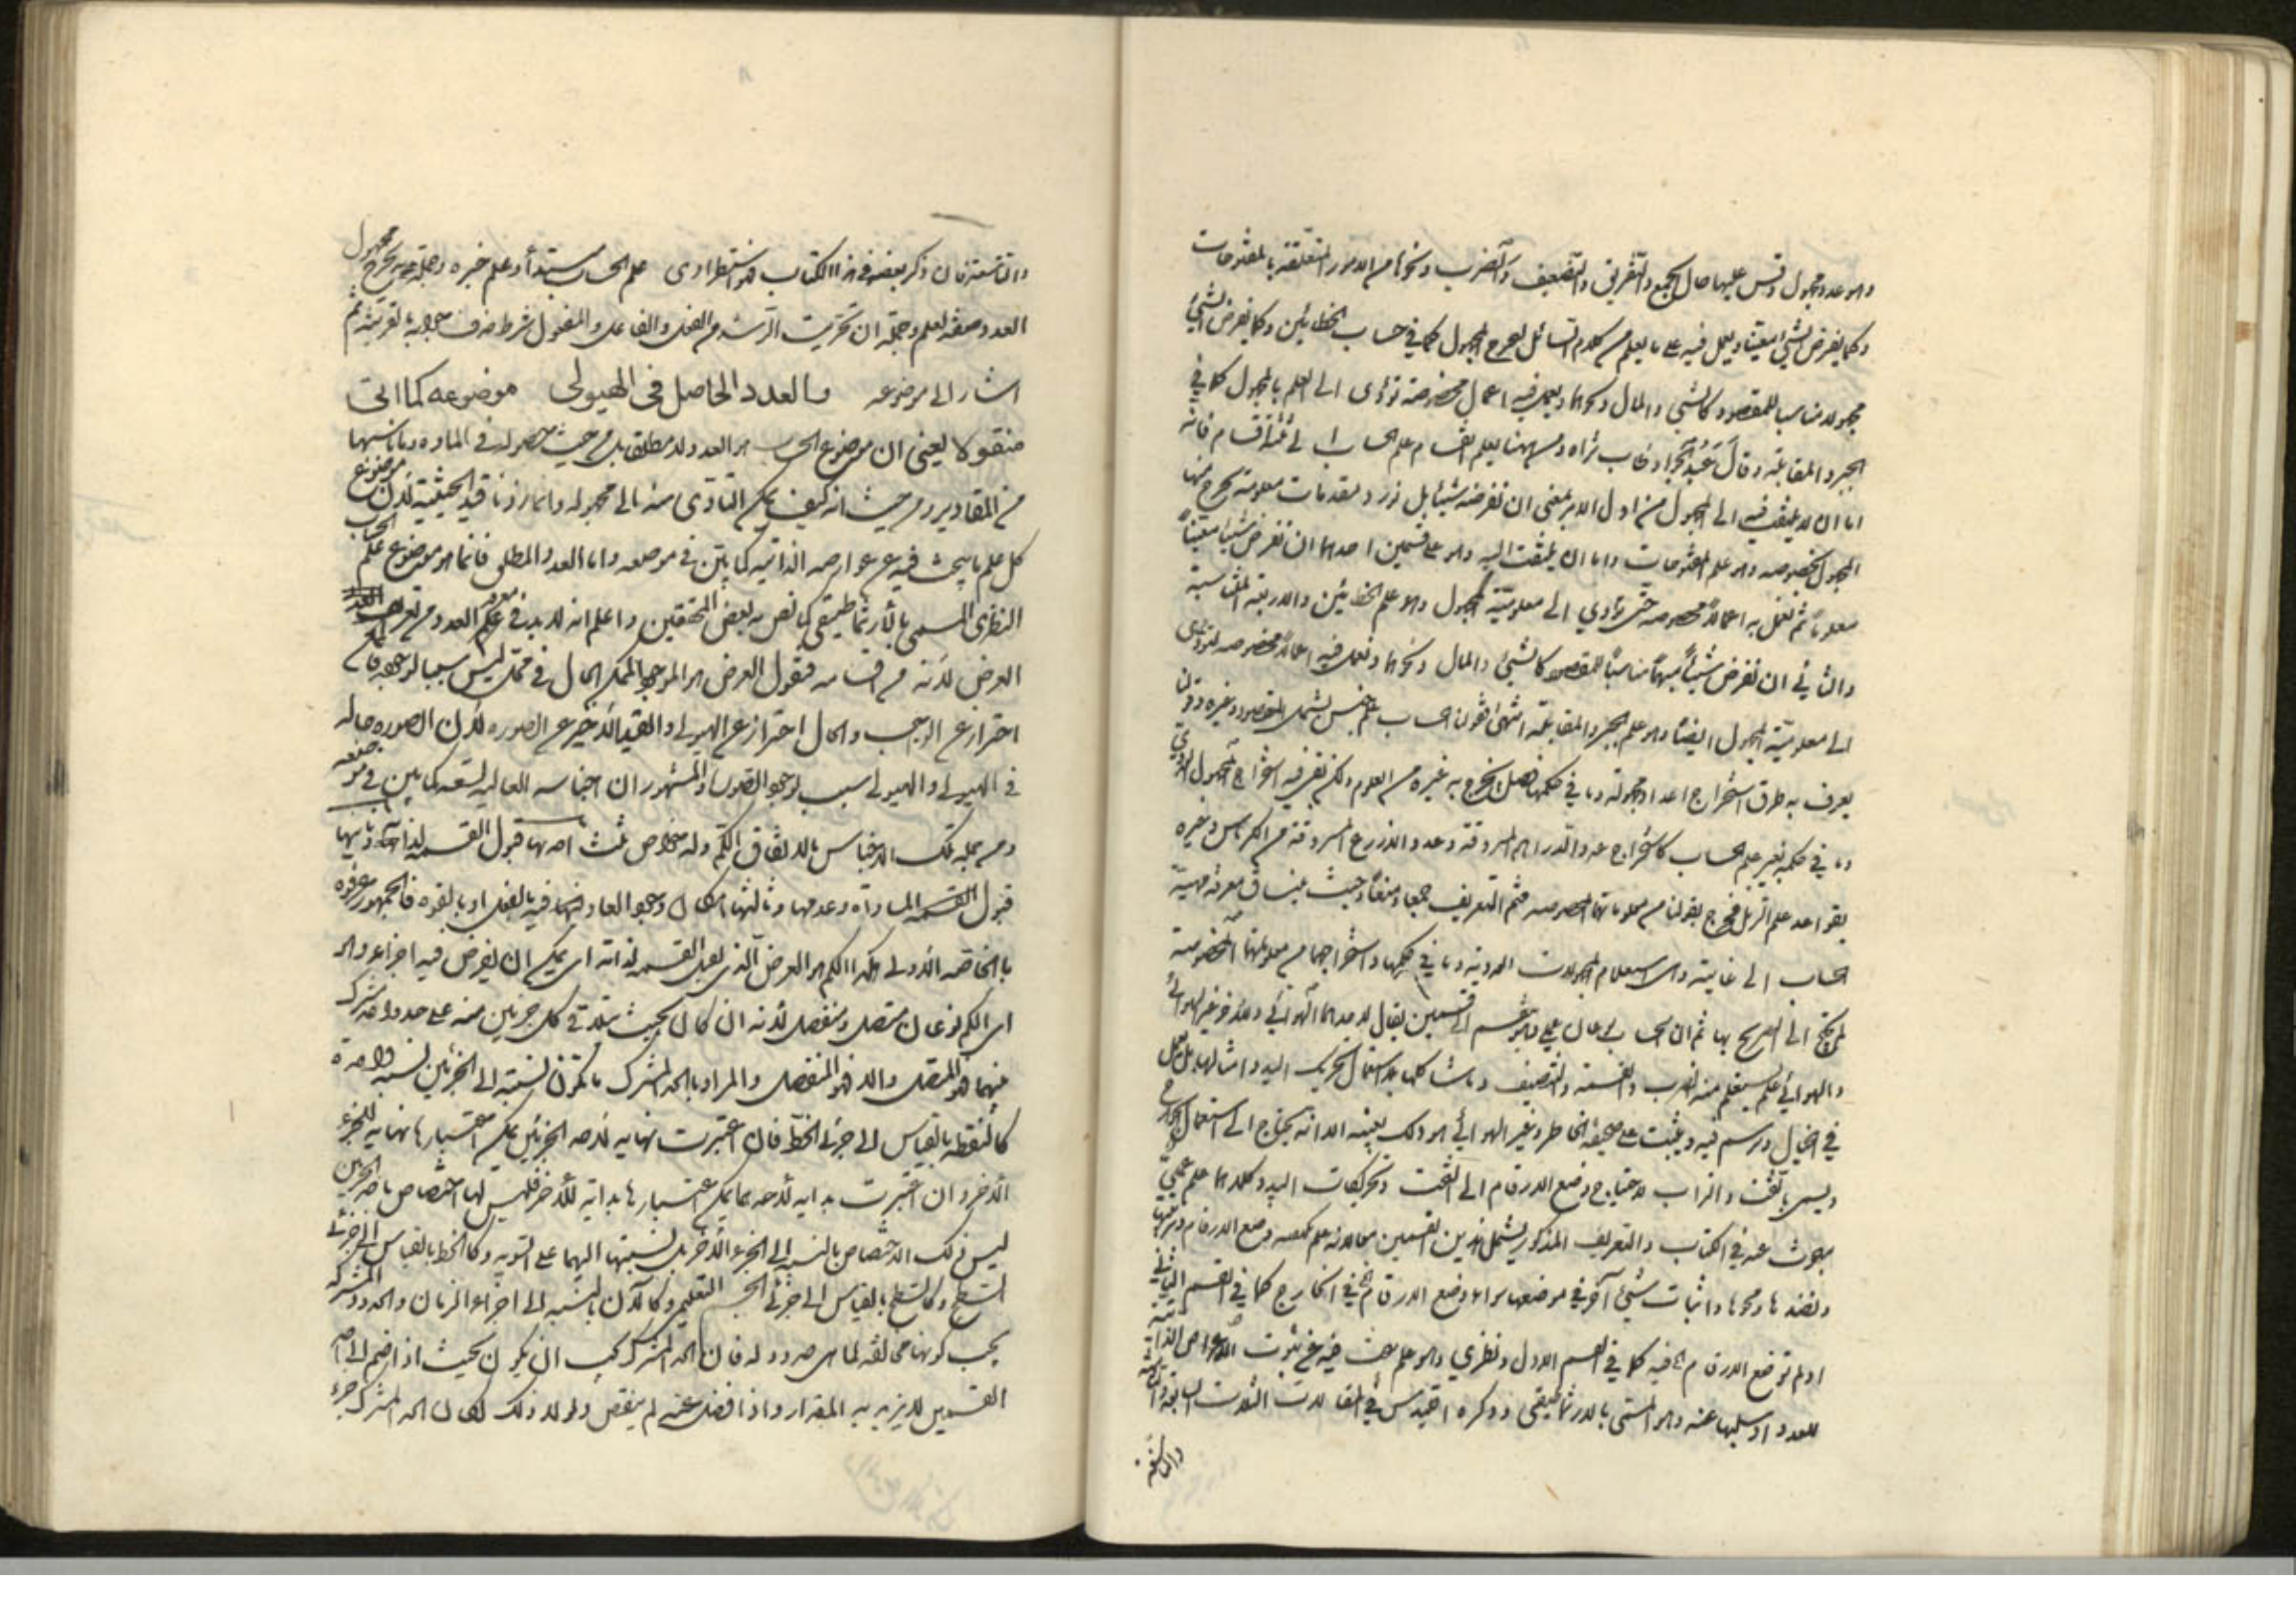 وهو عدد مجهول وقس عليها حال الجمع والتفريق والتضعيف والضرب ونحوها من الامور المتعلقة بالمفتوحات
وكما يفرض الشيء معينا ويعمل فيه على ما يعلم من كلام السائل ليخرج المجهول كما في حساب الخطائين وكما يفرض الشيء
مجهولا مناسبا للمقصود كالشيء والمال ونحوهما ويعمل فيه اعمال مخصوصة تؤدى الى العلم بالمجهول كما في
الجبر والمقابلة وقال ثراه ومن ههنا يعلم انقسام علم الحساب الى ثلثة اقسام فانه
اما ان لا يلتفت فيه الى المجهول من اول الامر بمعنى ان نفرضه شيئا بل نورد مقدمات معلومة يخرج منها
المجهول بخصوصه وهو علم المفتوحات واما ان يلتفت اليه وهو على قسمين احدهما ان نفرض شيئا معينا
معلوما ثم نعمل به اعمالا مخصوصة حتى تؤدي الى معلومية المجهول وهو علم الخطائين والاربعة المتناسبة
والثاني ان نفرض شيئا مبهما مناسبا للمقصود كالشيء والمال ونحوهما ونعمل فيه اعمالا مخصوصة لتؤدى
الى معلومية المجهول ايضا وهو علم الجبر والمقابلة انتهى فقولنا الحساب علم جنس يشمل المقصود وغيره وقولنا
يعرف به طرق استخراج اعداد مجهولة وما في حكمها فصل يخرج به غيره من العلوم ولكن بقي فيه استخراج المجهول
وما في حكمه بغير علم الحساب كاستخراج عدد الدراهم المسروقة وعدد الاذرع المسروقة من الكرباس وغيره
بقواعد علم الرمل فخرج بقولنا من معلوماتها المخصوصة فتم التعريف جمعا ومنعا وحيث ينساق معرفة مهية
الحساب الى غايته وهى استعلام المجهولات العددية وما في حكمها واستخراجها من معلوماتها المخصوصة
لم يحتج الى التصريح بها ثم ان الحساب نوعان عملي وهو ينقسم الى قسمين يقال لاحدهما الهوائي وللآخر غير الهوائي
والهوائي علم يستعلم منه الضرب والقسمة والتنصيف وما شاكلها بلا استعمال تحريك اليد وامثالها بل
في الخيال ورسم فيه ويثبت على صحيفة الخاطر وغير الهوائي هو ذلك بعينه الا انه يحتاج الى استعمال الجوارح
ويسمى بالتخت والتراب لاحتياج وضع الارقام الى التخت وتحريكات اليد وكلاهما علم عملي
مبحوث عنه في الكتاب والتعريف المذكور يشمل هذين القسمين وضع الارقام وترتيبها
ومحوها واثبات شيء آخر في موضعها سواء وضع الارقام في الخارج كما في القسم الثاني
او لم توضع الارقام فيه كما في القسم الاول ونظري وهو علم يبحث فيه عن ثبوت الاعراض الذاتية
للعدد او سلبها عنه وهو المسمى بالارثماطيقى وذكره اقليدس في المقالات الثلاث السابعة والثامنة
والتاسعة
والتاسعة فان ذكر بعضه في هذا الكتاب فهو استطرادى علم الحساب مبتدأ وعلم خبره وجملة يستخرج مجهول
العدد صفة لعلم وجملة ان تحريت الرشد من الفعل والفاعل والمفعول شرط حذف جوابه بالقرينة ثم
اشار الى موضوعه والعدد الحاصل فى الهيولى موضوعه كما اتى
منقولا يعنى ان موضوع الحساب هو العدد لا مطلقا بل من حيث حصوله في المادة وما ناسبها
من المقادير ومن حيث انه كيف يمكن التأدى منه الى مجهوله وانما زدنا قيد الحيثية لان موضوع
كل علم ما يبحث فيه عن عوارضه الذاتية كما بين في موضعه واما العدد المطلق فانما هو موضوع علم الحساب
النظرى المسمى بالارثماطيقى كما نص به بعض المحققين واعلم انه لا بد في معرفة العدد من تعريف
العرض لانه من اقسامه فنقول العرض هو الموجود الممكن الحال في محل ليس سببا لوجوده
احتراز عن الواجب والحال احتراز عن الهيولى والقيد الاخير عن الصورة لان الصورة حالة
في الهيولى والهيولى سبب لوجود الصورة والمشهور ان اجناسه العالية تسعة كما بين في موضعه
ومن جملة تلك الاجناس بالاتفاق الكم وله خواص ثلث احدها قبول القسمة لذاته وثانيها
قبول المساواة وعدمها وثالثها امكان وجود العاد فيه بالفعل او بالقوة فالجمهور عرفوه
بالخاصة الاولى هكذا الكم هو العرض الذى يقبل القسمة لذاته اى يمكن ان يفرض فيه اجزاء وهو
اى الكم نوعان متصل ومنفصل لانه ان كان بحيث يتلاقى كل جزئين منه على حد واحد مشترك
بينهما فهو المتصل والا فهو المنفصل والمراد بالحد المشترك ما تكون نسبته الى الجزئين نسبة واحدة
كالنقطة بالقياس الى جزئى الخط فان اعتبرت نهاية لاحد الجزئين يمكن اعتبارها نهاية للجزء
الآخر وان اعتبرت بداية لاحدهما يمكن اعتبارها بداية للآخر فليس لها اختصاص باحد الجزئين
ليس ذلك الاختصاص بالنسبة الى الجزء الآخر بل نسبتها اليهما على السوية وكالخط بالقياس الى جزئى
السطح وكالسطح بالقياس الى جزئى الجسم التعليمي وكالآن بالنسبة الى اجزاء الزمان والحدود المشتركة
يجب كونها مخالفة لما هى حدود له فان الحد المشترك يجب ان يكون بحيث اذا ضم الى احد
القسمين لا يزيد به المقدار واذا فصل عنه لم ينقص ولولا ذلك لكان الحد المشترك جزء